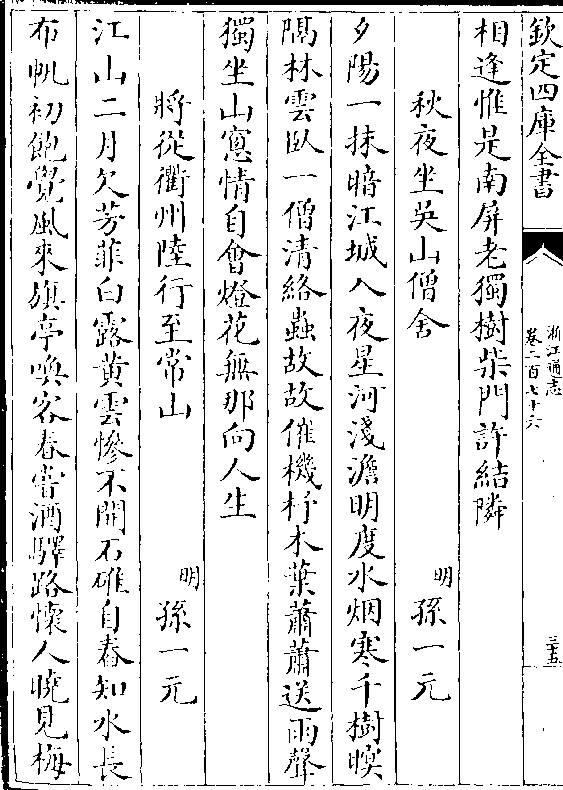 欽定四庫全書
浙江通志
卷二百七十六
三五
相逢惟是南屏老獨樹柴門許結隣
秋夜坐吳山僧舍
明
孫一元
夕陽一抹暗江城入夜星河淺澹明度水烟寒千樹暝
隔林雲卧一僧清絡蟲故故催機杼木葉蕭蕭送雨聲
獨坐山窻情自會燈花無那向人生
將從衢州陸行至常山
明
孫一元
江山二月欠芳菲白露黄雲慘不開石碓自舂知水長
布帆初飽覺風來旗亭喚客春嘗酒驛路懷人曉見梅